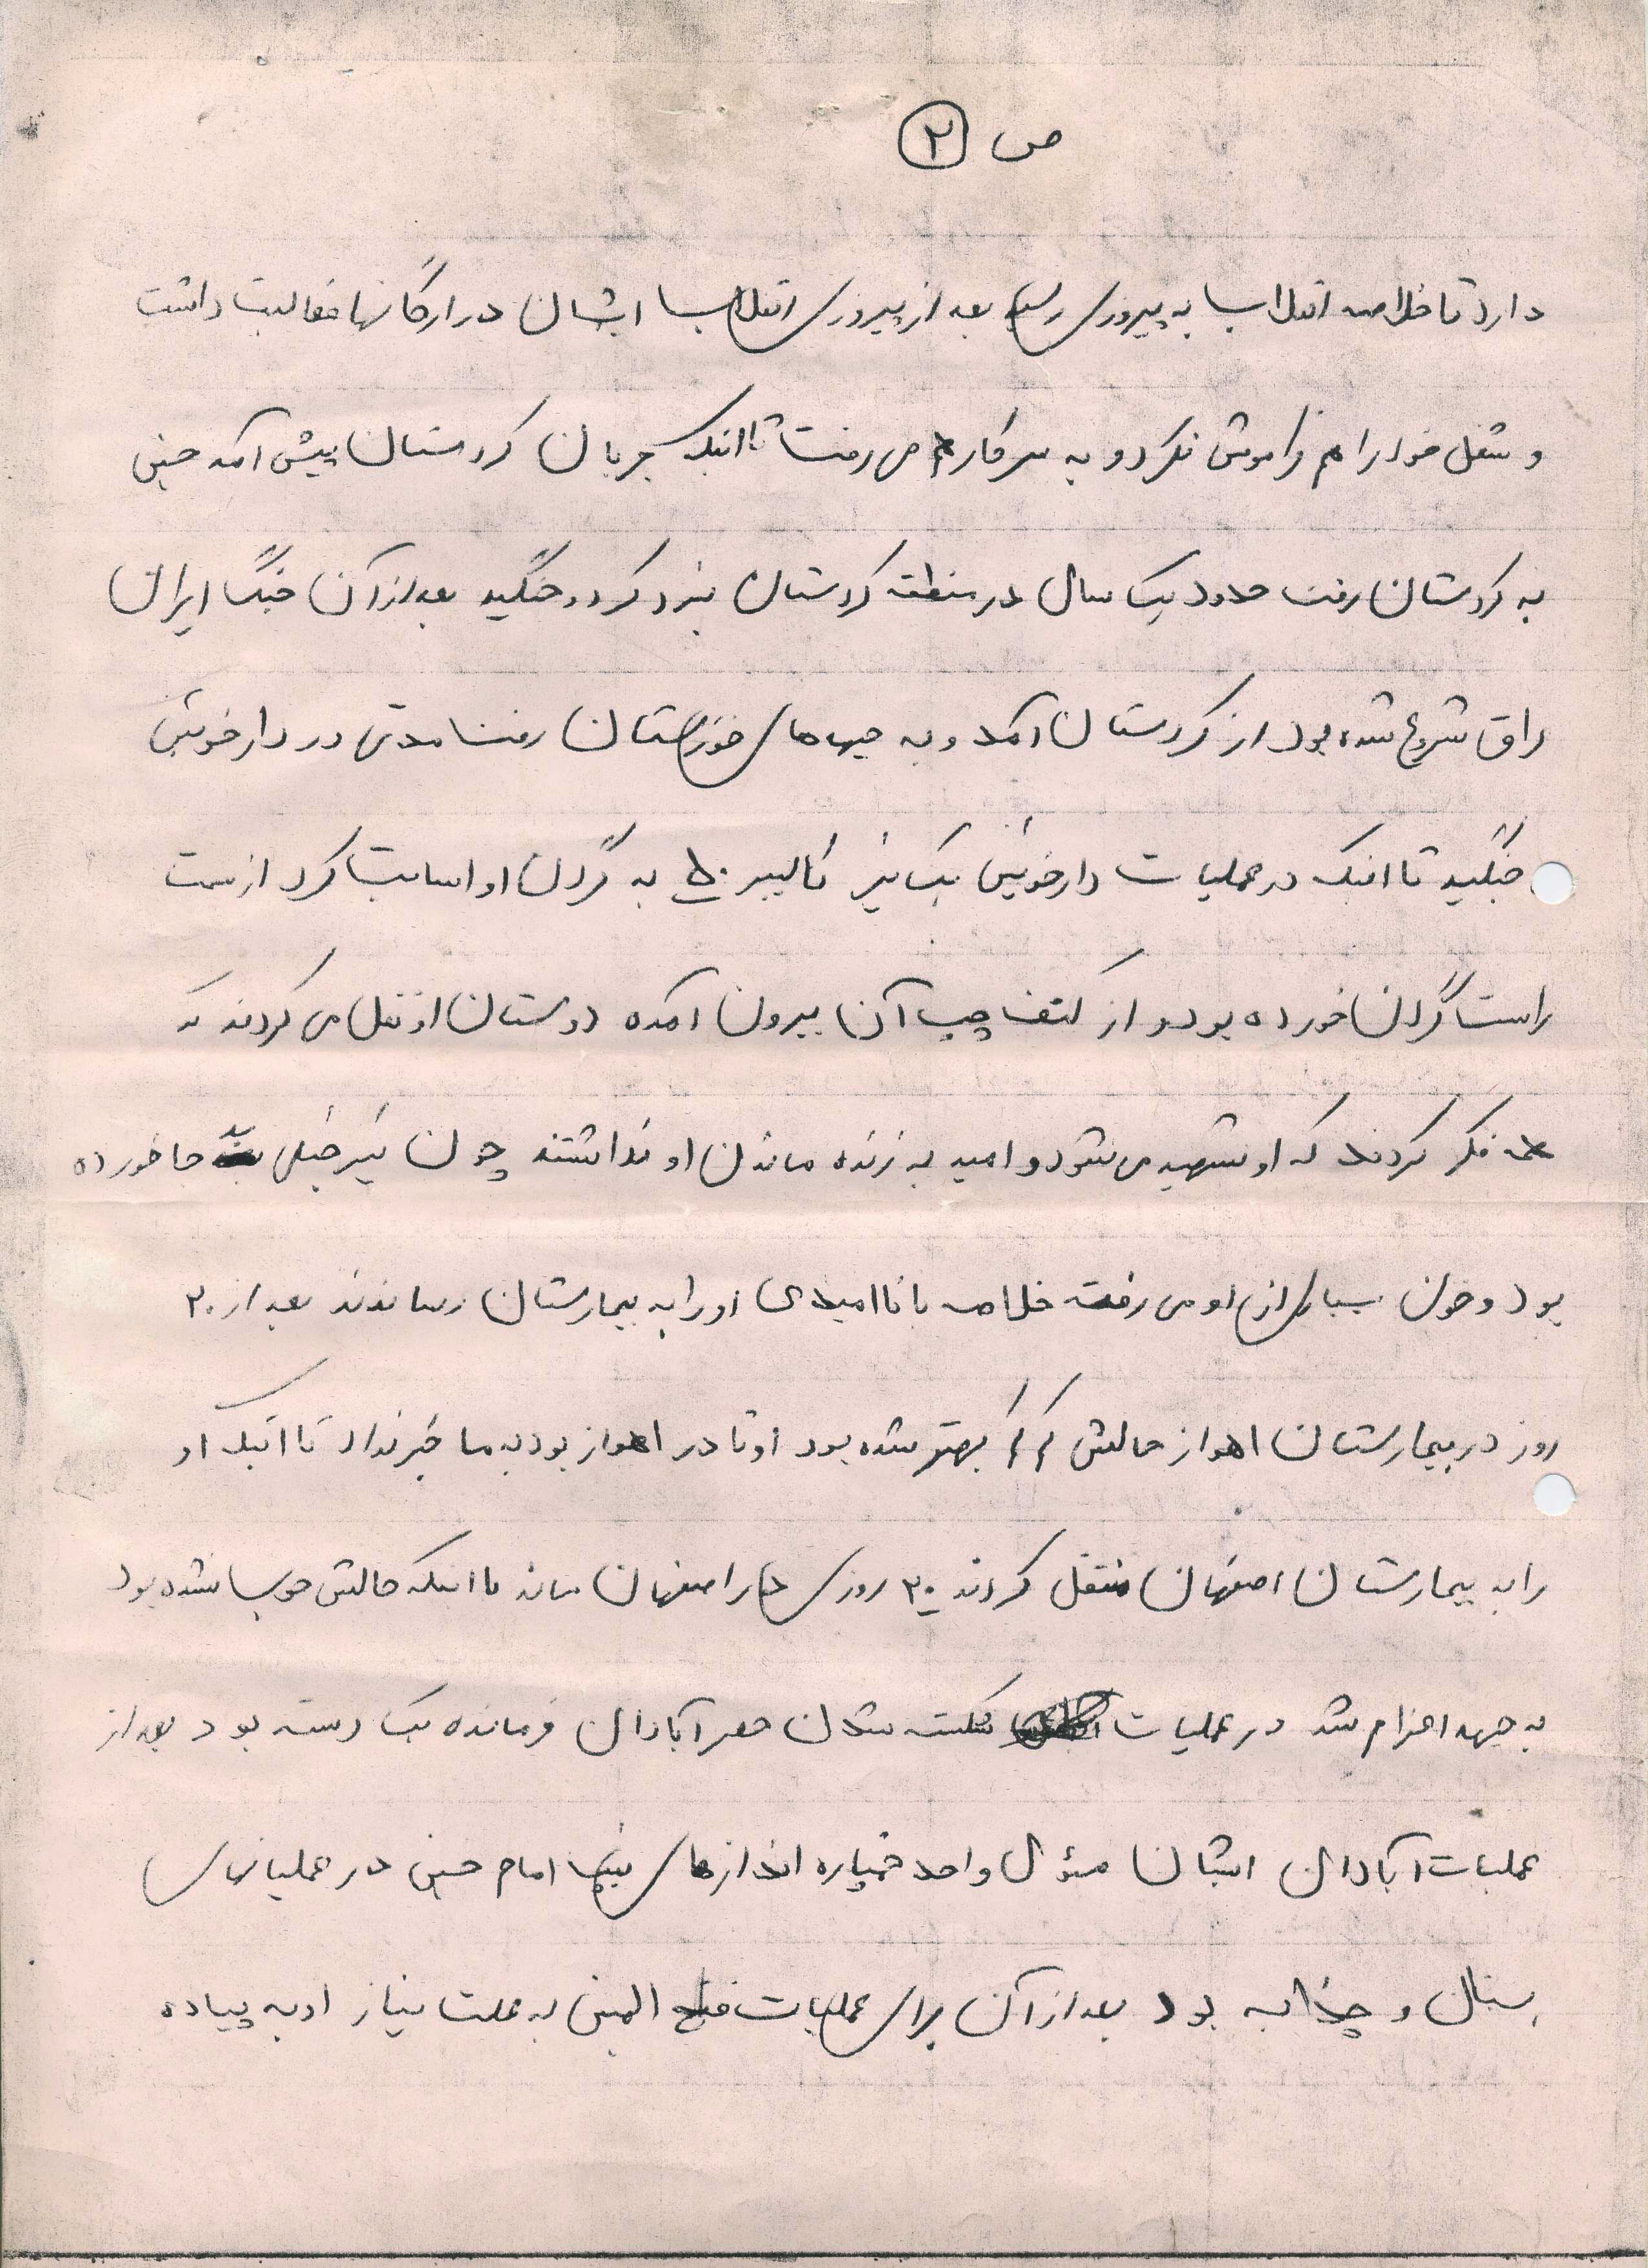 ص ۲
دارد تا خلاصه انقلاب به پیروزی رسید بعد از پیروزی انقلاب ایشان در ارگانها فعالیت داشت
و شغل خود را هم فراموش نکرد و به سر کار هم می رفت تا اینکه جریان کردستان پیش آمد حسین
به کردستان رفت حدود یک سال در منطقه کردستان نبرد کرد و جنگید بعد از آن جنگ ایران
راق شروع شده بود از کردستان آمد و به جبهه های خوزستان رفت مدتی در دارخوین
جنگید تا اینکه در عملیات دارخوین یک تیر کالیبر ۵۰ به گردن او اصابت کرد از سمت
راست گردن خورده بود و از کتف چپ آن بیرون آمده دوستان او نقل می کردند که
همه فکر کردند که او شهید می شود و امید به زنده ماندن او نداشتند چون تیر خیلی بد جا خورده
بود و خون بسیاری از او می رفت خلاصه با ناامیدی او را به بیمارستان رساندند بعد از ۲۰
روز در بیمارستان اهواز حالش کم کم بهتر شده بود او تا در اهواز بود به ما خبر نداد تا اینکه او
را به بیمارستان اصفهان منتقل کردند ۲۰ روزی در اصفهان ماند با اینکه حالش خوب نشده بود
به جبهه اعزام شد در عملیات شکسته شدن حصر آبادان فرمانده یک دسته بود بعد از
عملیات آبادان ایشان مسئول واحد خمپاره اندازهای تیپ امام حسین در عملیاتهای
بستان و چذابه بود بعد از آن برای عملیات فتح المبین به علت نیاز او به پیاده